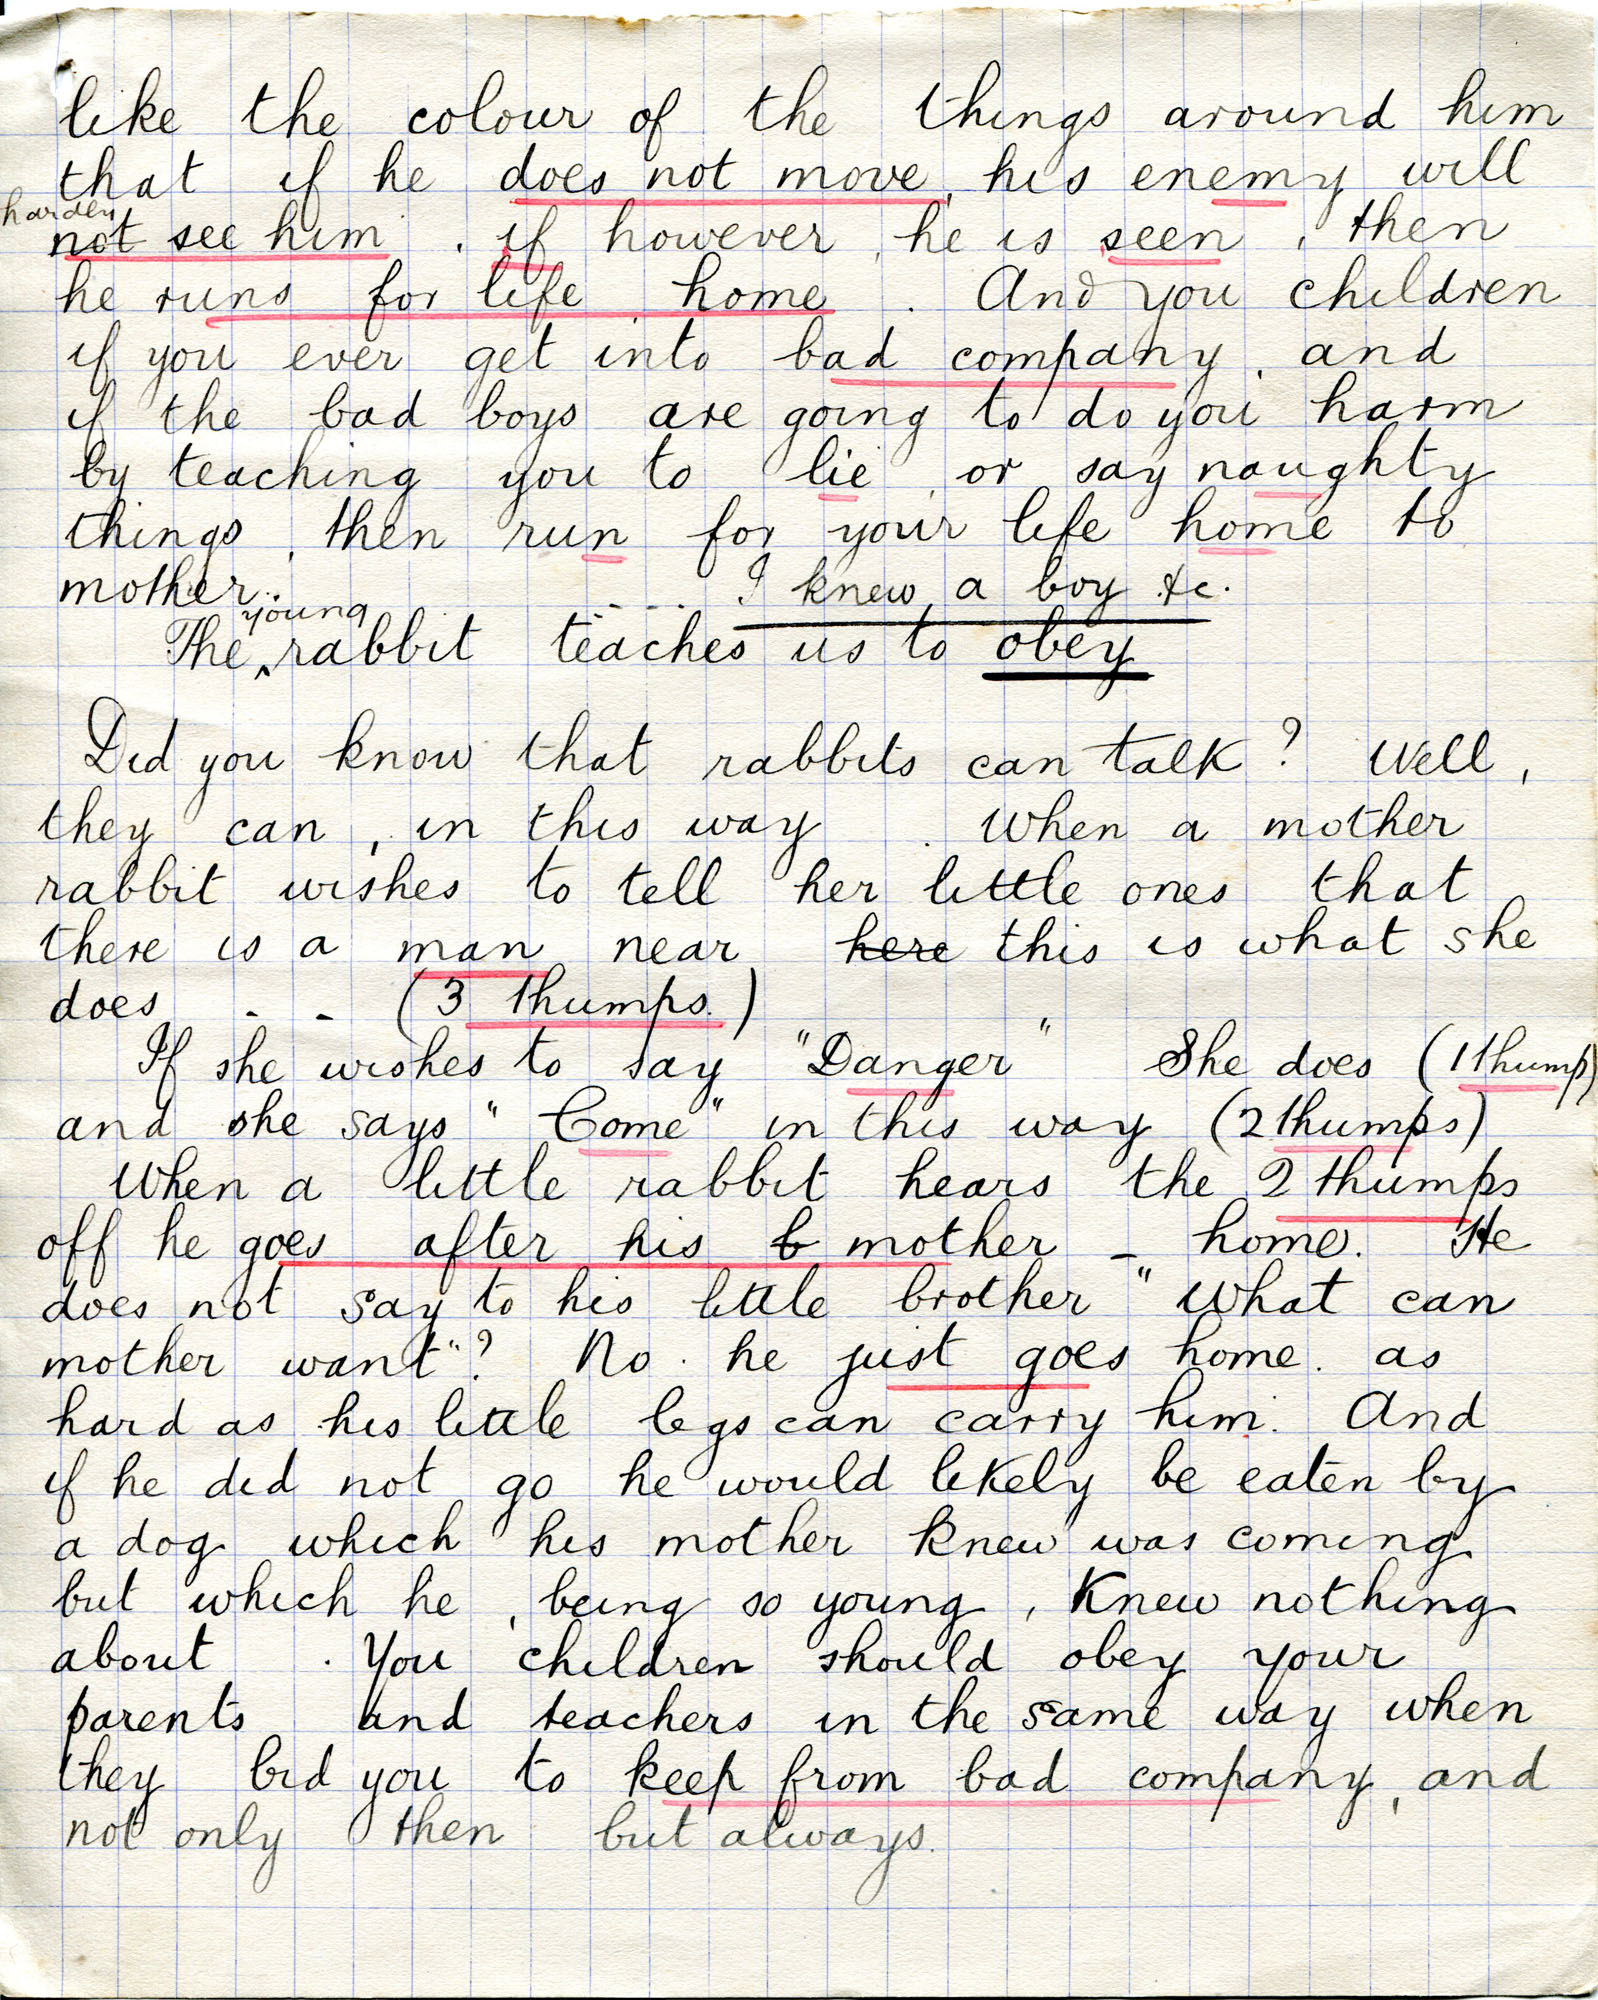 like the colour of the things around him
that if he does not move, his enemy will
harden
not see him . if however, he is seen, then
he runs for life, home. And you children
if you ever get into bad company, and
if the bad boys are going to do you harm
by teaching you to lie, or say naughty
things, then run for your life home to
mother. - - - - I knew a boy &c.
young
The ^ rabbit teaches us to obey
Did you know that rabbits can talk? Well,
they can, in this way. When a mother
rabbit wishes to tell her little ones that
there is a man near here this is what she
does - - (3 thumps.)
If she wishes to say "Danger" She does (1 thump)
and she says "Come" in this way (2 thumps)
When a little rabbit hears the 2 thumps
off he goes after his b mother - home. He
does not say to his little brother "What can
mother want"? No. he just goes home. as
hard as his little legs can carry him. And
if he did not go he would likely be eaten by
a dog which his mother knew was coming
but which he, being so young, knew nothing
about. You children should obey your
parents and teachers in the same way when
they bid you to keep from bad company, and
not only then but always.